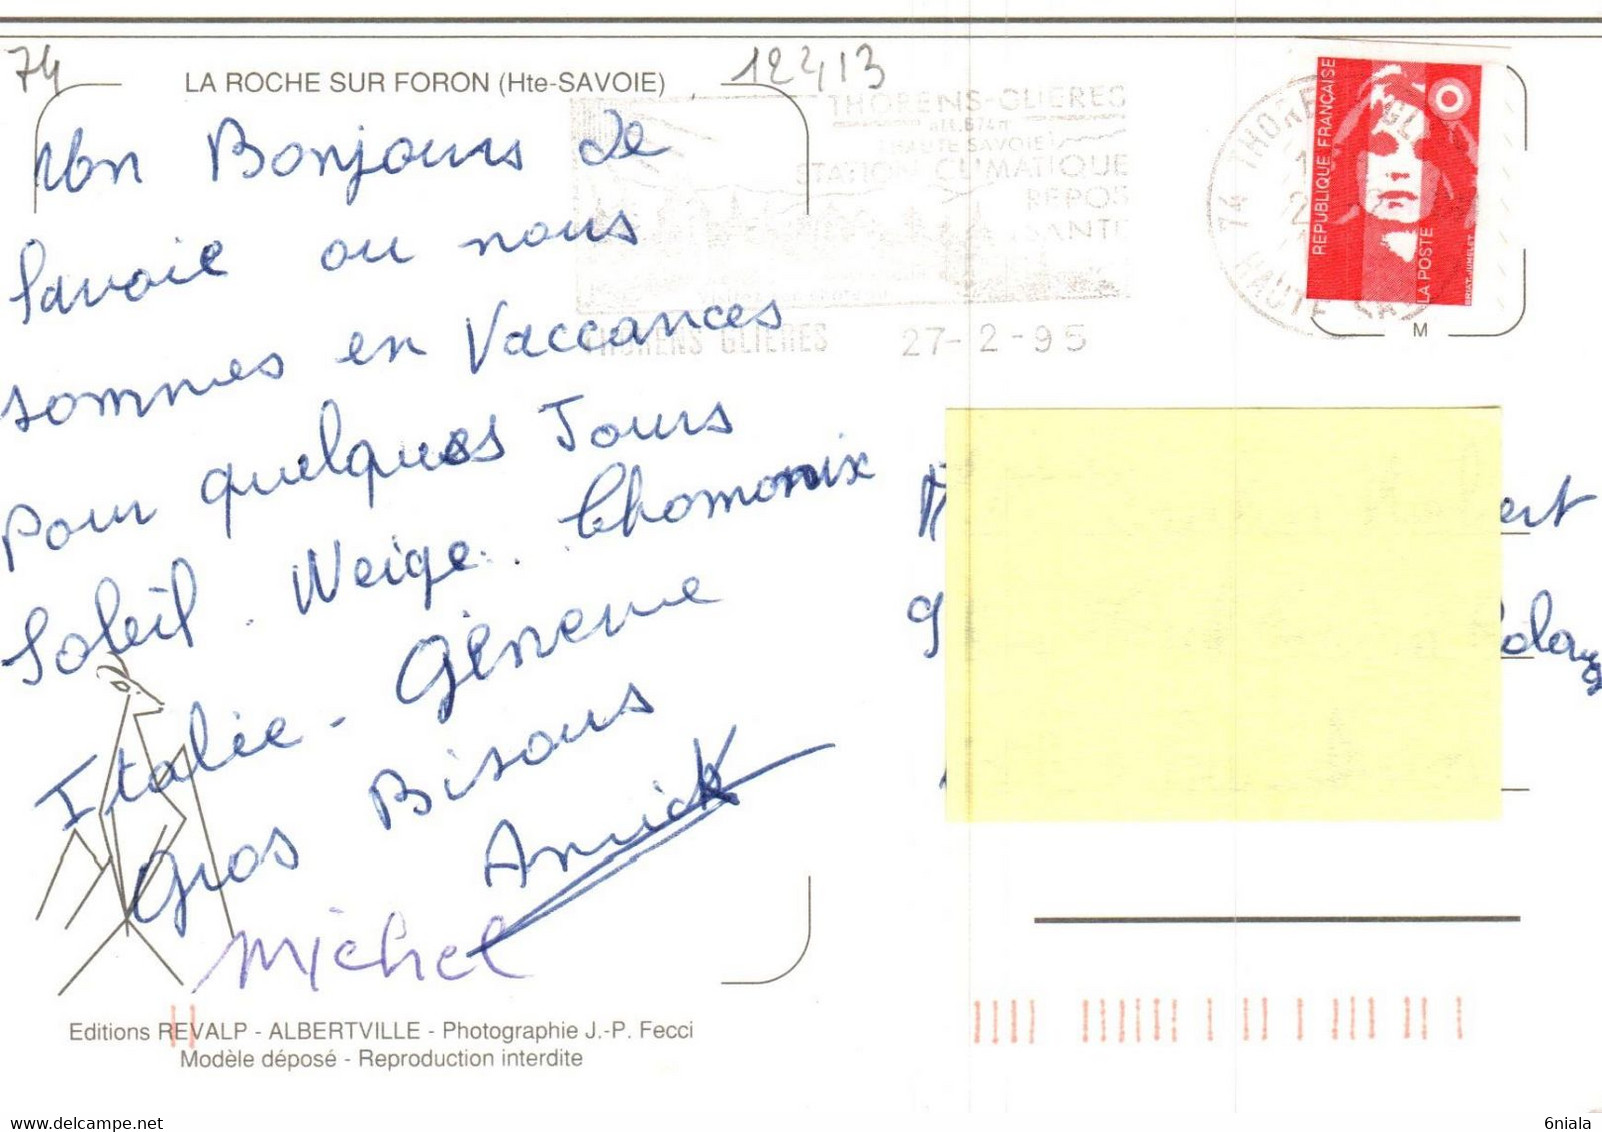 74
12413
LA ROCHE SUR FORON (Hte-SAVOIE)
Un Bonjours de
Savoie ou nous
sommes en Vaccances
Pour quelques Jours
Soleil. Neige. Chomonix
Italie - Géneve
Gros Bisous
Annick
Michel
Editions REVALP - ALBERTVILLE - Photographie J.-P. Fecci
Modèle déposé - Reproduction interdite
THORENS-GLIERES
ALT.674m
(HAUTE SAVOIE)
STATION CLIMATIQUE
REPOS
SANTE
THORENS GLIERES 27-2-95
74 THORE GL
HAUTE SA
REPUBLIQUE FRANÇAISE
LA POSTE
BRIAT-JUMELET
M
ert
6niala